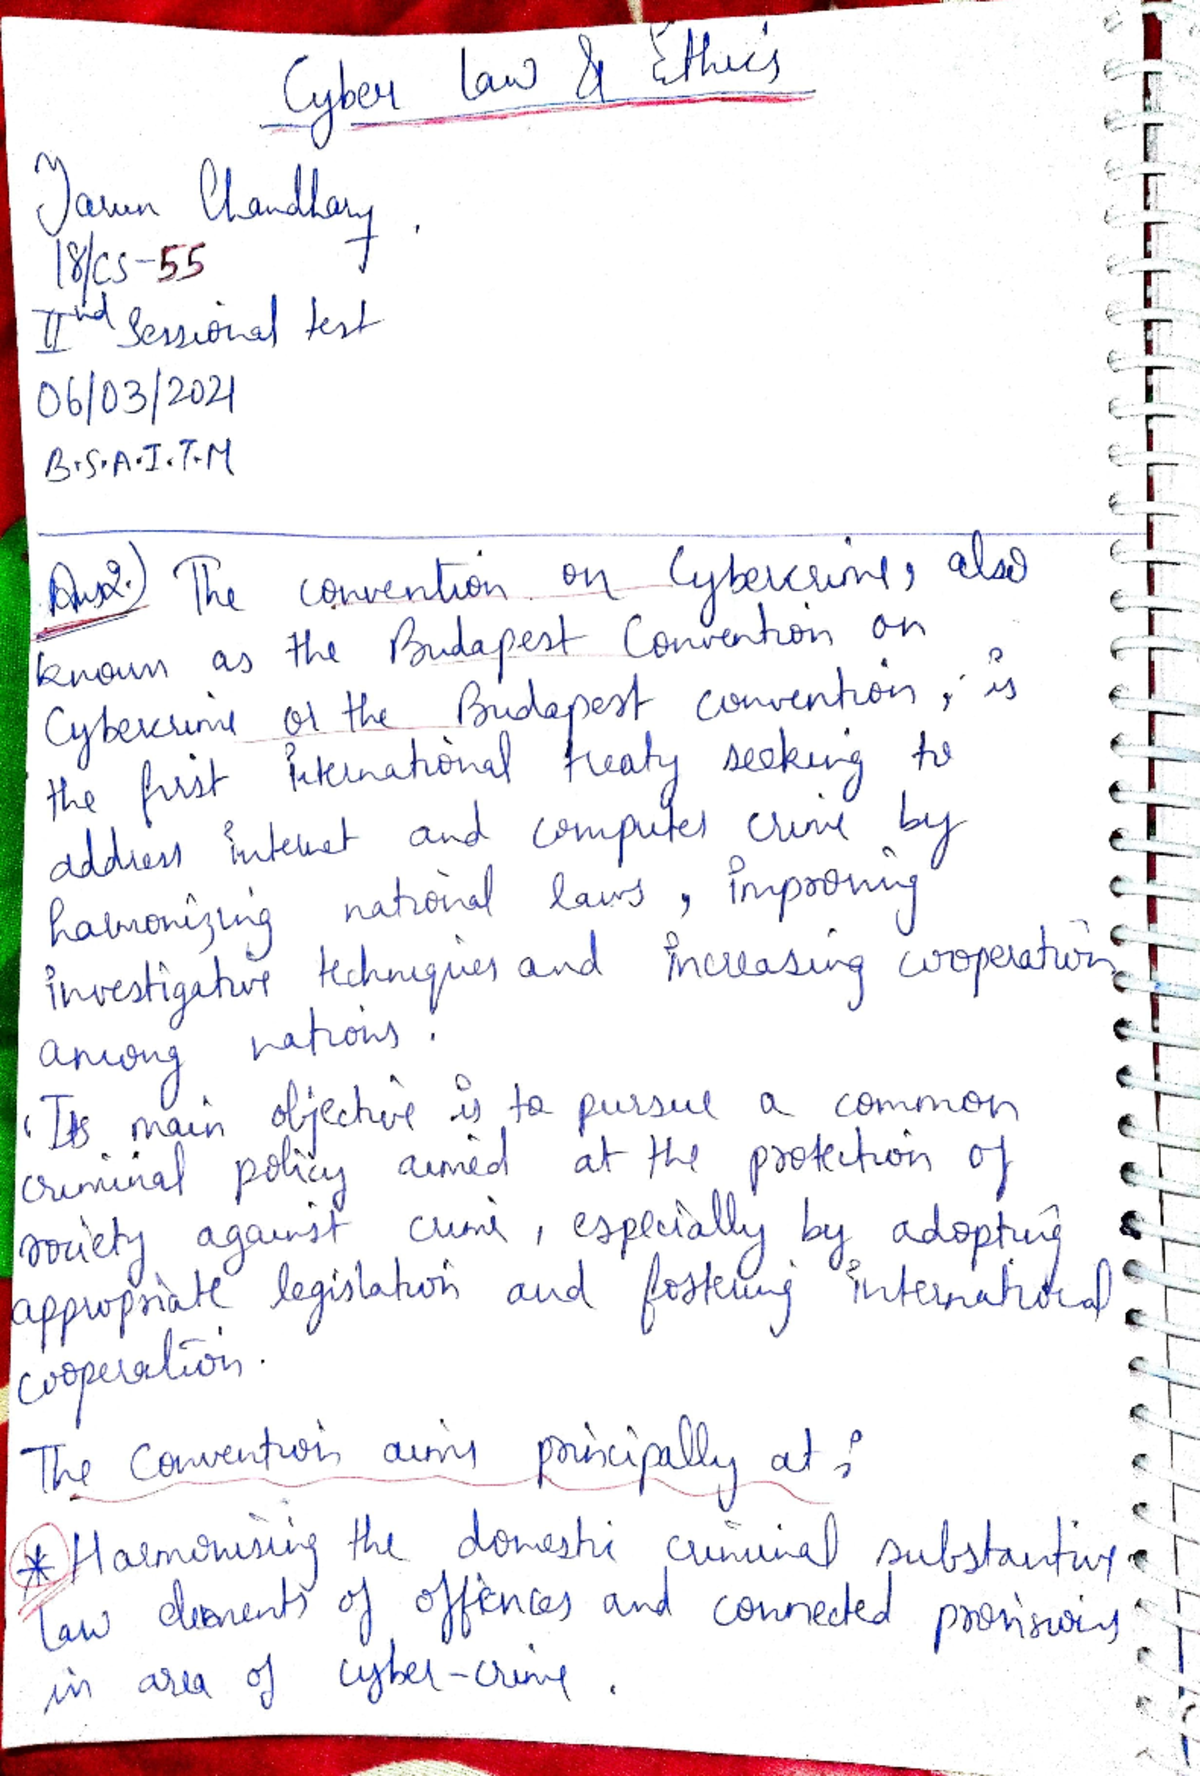 Cyber Law & Ethics
Tarun Chaudhary.
18/CS-55
IInd Sessional test
06/03/2021
B.S.A.I.T.M
Ans2.) The convention on Cybercrime, also
known as the Budapest Convention on
Cybercrime or the Budapest convention, is
the first international treaty seeking to
address internet and computer crime by
harmonizing national laws, improving
investigative techniques and increasing cooperation
among nations.
Its main objective is to pursue a common
criminal policy aimed at the protection of
society against crime, especially by adopting
appropriate legislation and fostering international
cooperation.
The Convention aims principally at :
* Harmonising the domestic criminal substantive
law elements of offences and connected provisions
in area of cyber-crime.